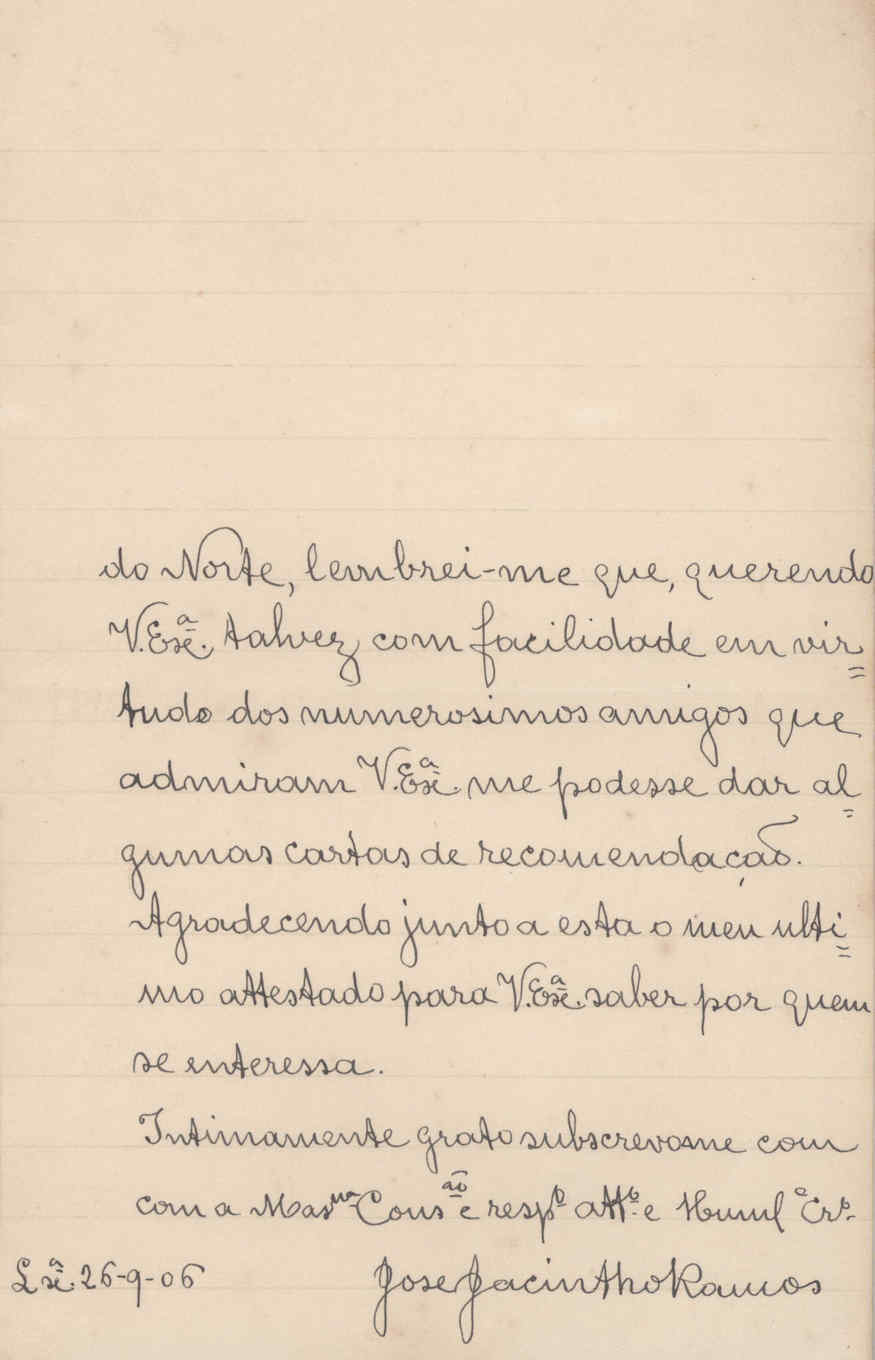 do Norte, lembrei-me que, querendo
V. Exª. talvez com facilidade em vir=
tude dos numerosimos amigos que
admiram V. Exª. me podesse dar al=
gumas cartas de recomendação.
Agradecendo junto a esta o meu ulti=
mo attestado para V. Exª. saber por quem
se interessa.
Intimamente grato subscrevome com
com a Masma Consão e respº attº e Huml e Crº.
26-9-06 Jose Jacintho Ramos